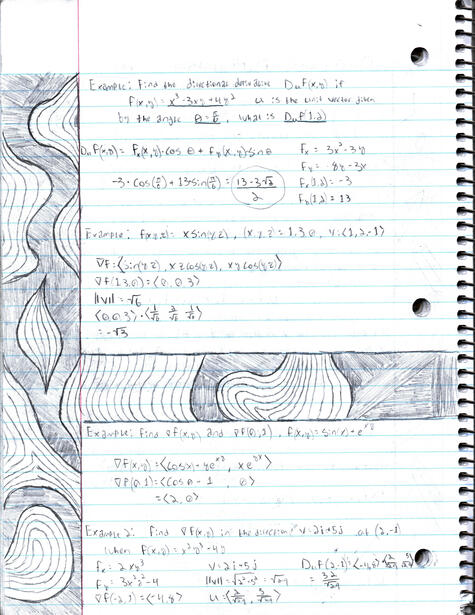 Example: Find the directional derivative Duf(x,y) if
f(x,y) = x³-3xy+4y² u is the unit vector given
by the angle θ=π/6, what is Duf(1,2)
Duf(x,y) = fx(x,y)·cosθ + fy(x,y)sinθ
fx = 3x²-3y
fy = 8y-3x
-3·cos(π/6)+13·sin(π/6) = (13-3√3)/2
fx(1,2) = -3
fy(1,2) = 13
Example: f(x,y,z) = xsin(yz), (x,y,z) = 1,3,0, v=⟨1,2,-1⟩
∇f=⟨sin(yz), xzcos(yz), xycos(yz)⟩
∇f(1,3,0)=⟨0,0,3⟩
||v|| = √6
⟨0,0,3⟩·⟨1/√6 2/√6 1/√6⟩
= -√3
Example: Find ∇f(x,y) and ∇f(0,1), f(x,y)=sin(x)+e^xy
∇f(x,y)=⟨cosx+ye^xy, xe^yx⟩
∇f(0,1)=⟨cos0-1, 0⟩
=⟨2,0⟩
Example 2: Find ∇f(x,y) in the direction v=2i+5j at (2,-1)
when f(x,y)=x²y³-4y
fx = 2xy³
fy = 3x²y²-4
∇f(-2,1)=⟨-4,8⟩
v=2i+5j
||v||=√2²+5² = √29
u=⟨2/√29, 5/√29⟩
Duf(2,-1)=⟨-4,8⟩·⟨2/√29, 5/√29⟩
= 32/√29